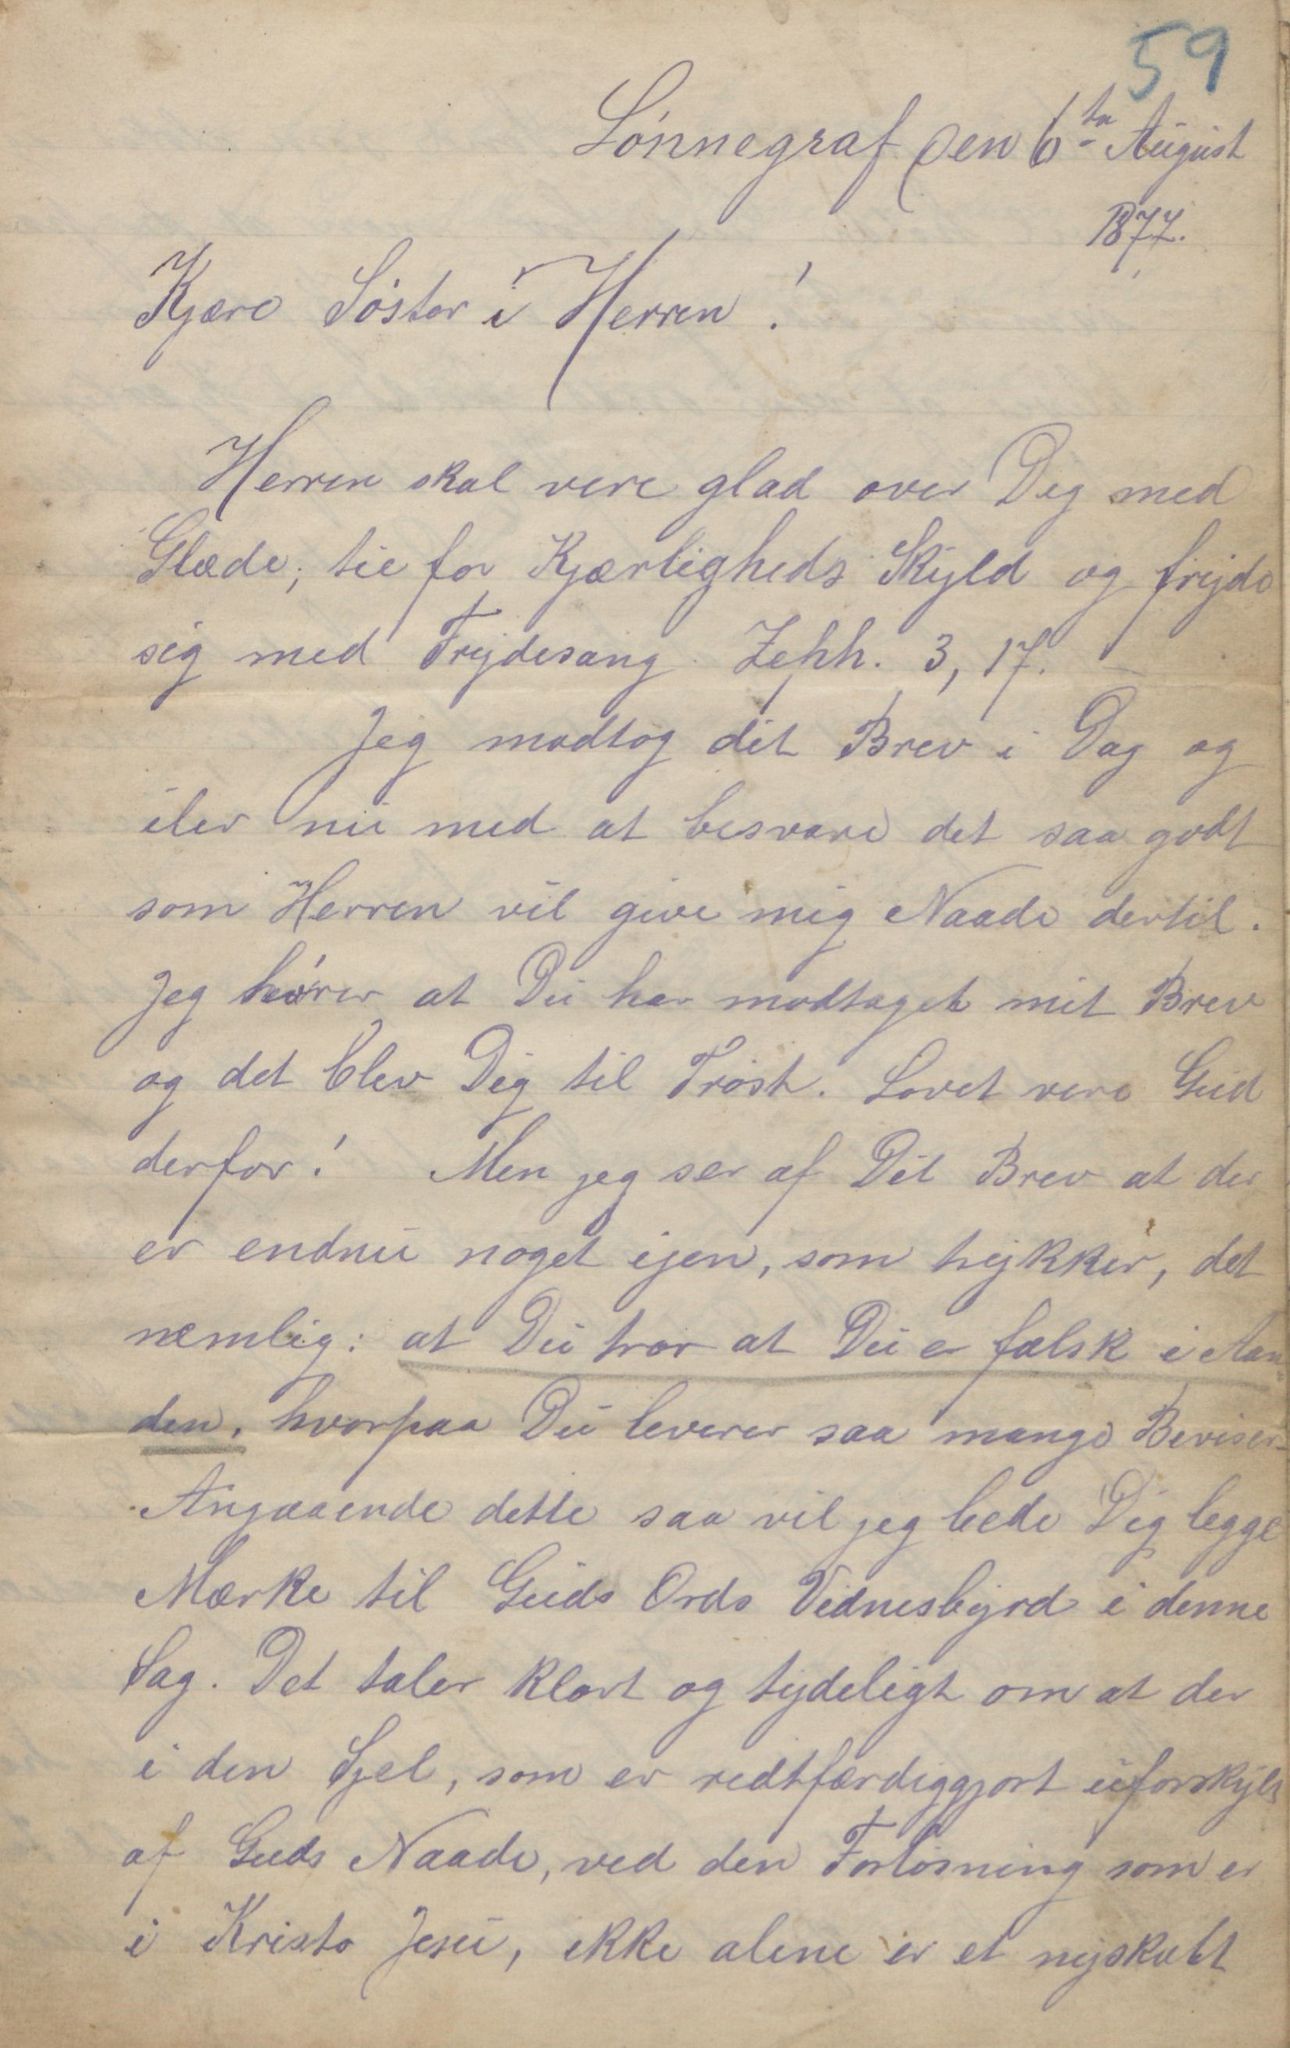 59
Lønnegraf den 6te August
1877.
Kjære Søster i Herren!
Herren skal vere glad over Dig med
Glæde; tie for Kjærligheds Skyld og fryde
sig med Frydesang. Zeph. 3, 17. –
Jeg modtog dit Brev i Dag og
iler nu med at besvare det saa godt
som Herren vil give mig Naade dertil.
Jeg hører at Du har modtaget mit Brev
og det blev Dig til Trøst. Lovet vere Gud
derfor! Men jeg ser af Dit Brev at der
er endnu noget igen, som trykker, det
nemlig: at Du tror at Du er falsk i Aan-
den, hvorpaa Du leverer saa mange Beviser.
Angaaende dette saa vil jeg bede Dig legge
Mærke til Guds Ords Vidnesbyrd i denne
Sag. Det taler klart og tydeligt om at der
i den Sjel, som er redtfærdiggjort uforskyldt
af Guds Naade, ved den Forløsning som er
i Kristo Jesu, ikke alene er et nyskabt